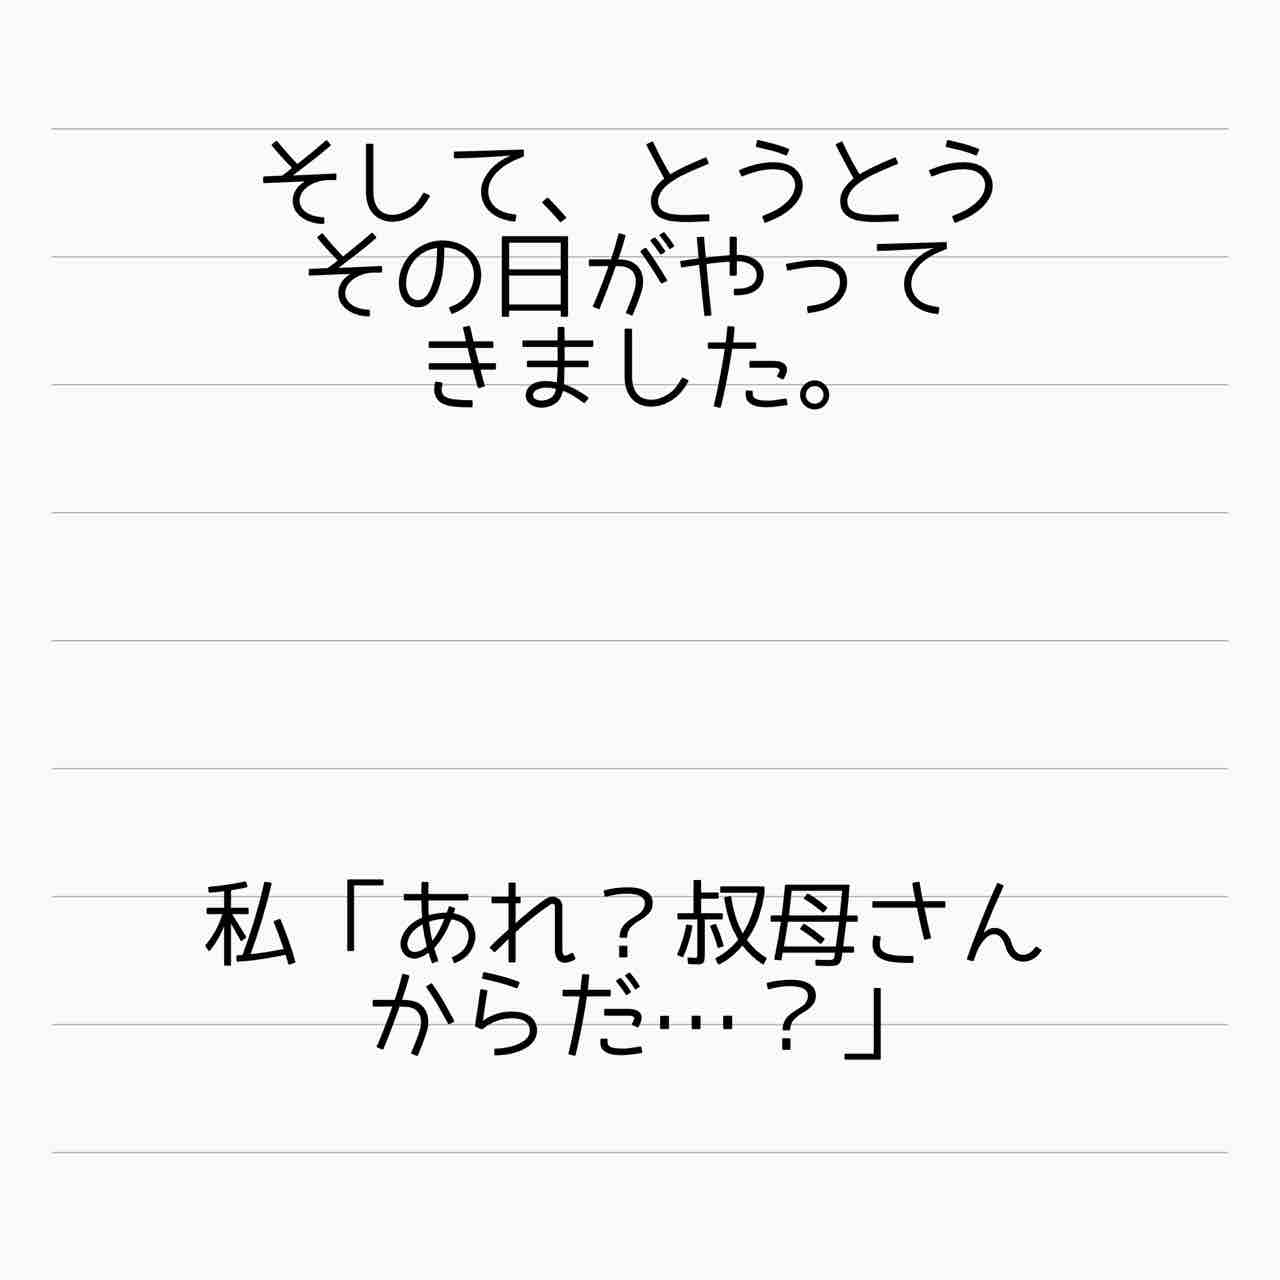 そして、とうとう
その日がやって
きました。
私「あれ？叔母さん
からだ…？」